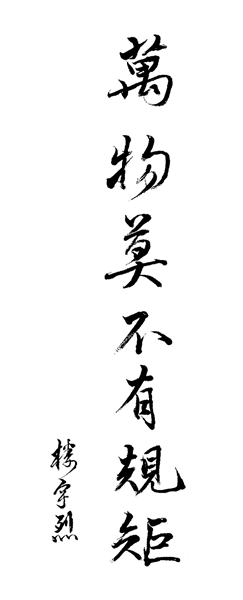 萬物莫不有規矩
樓宇烈